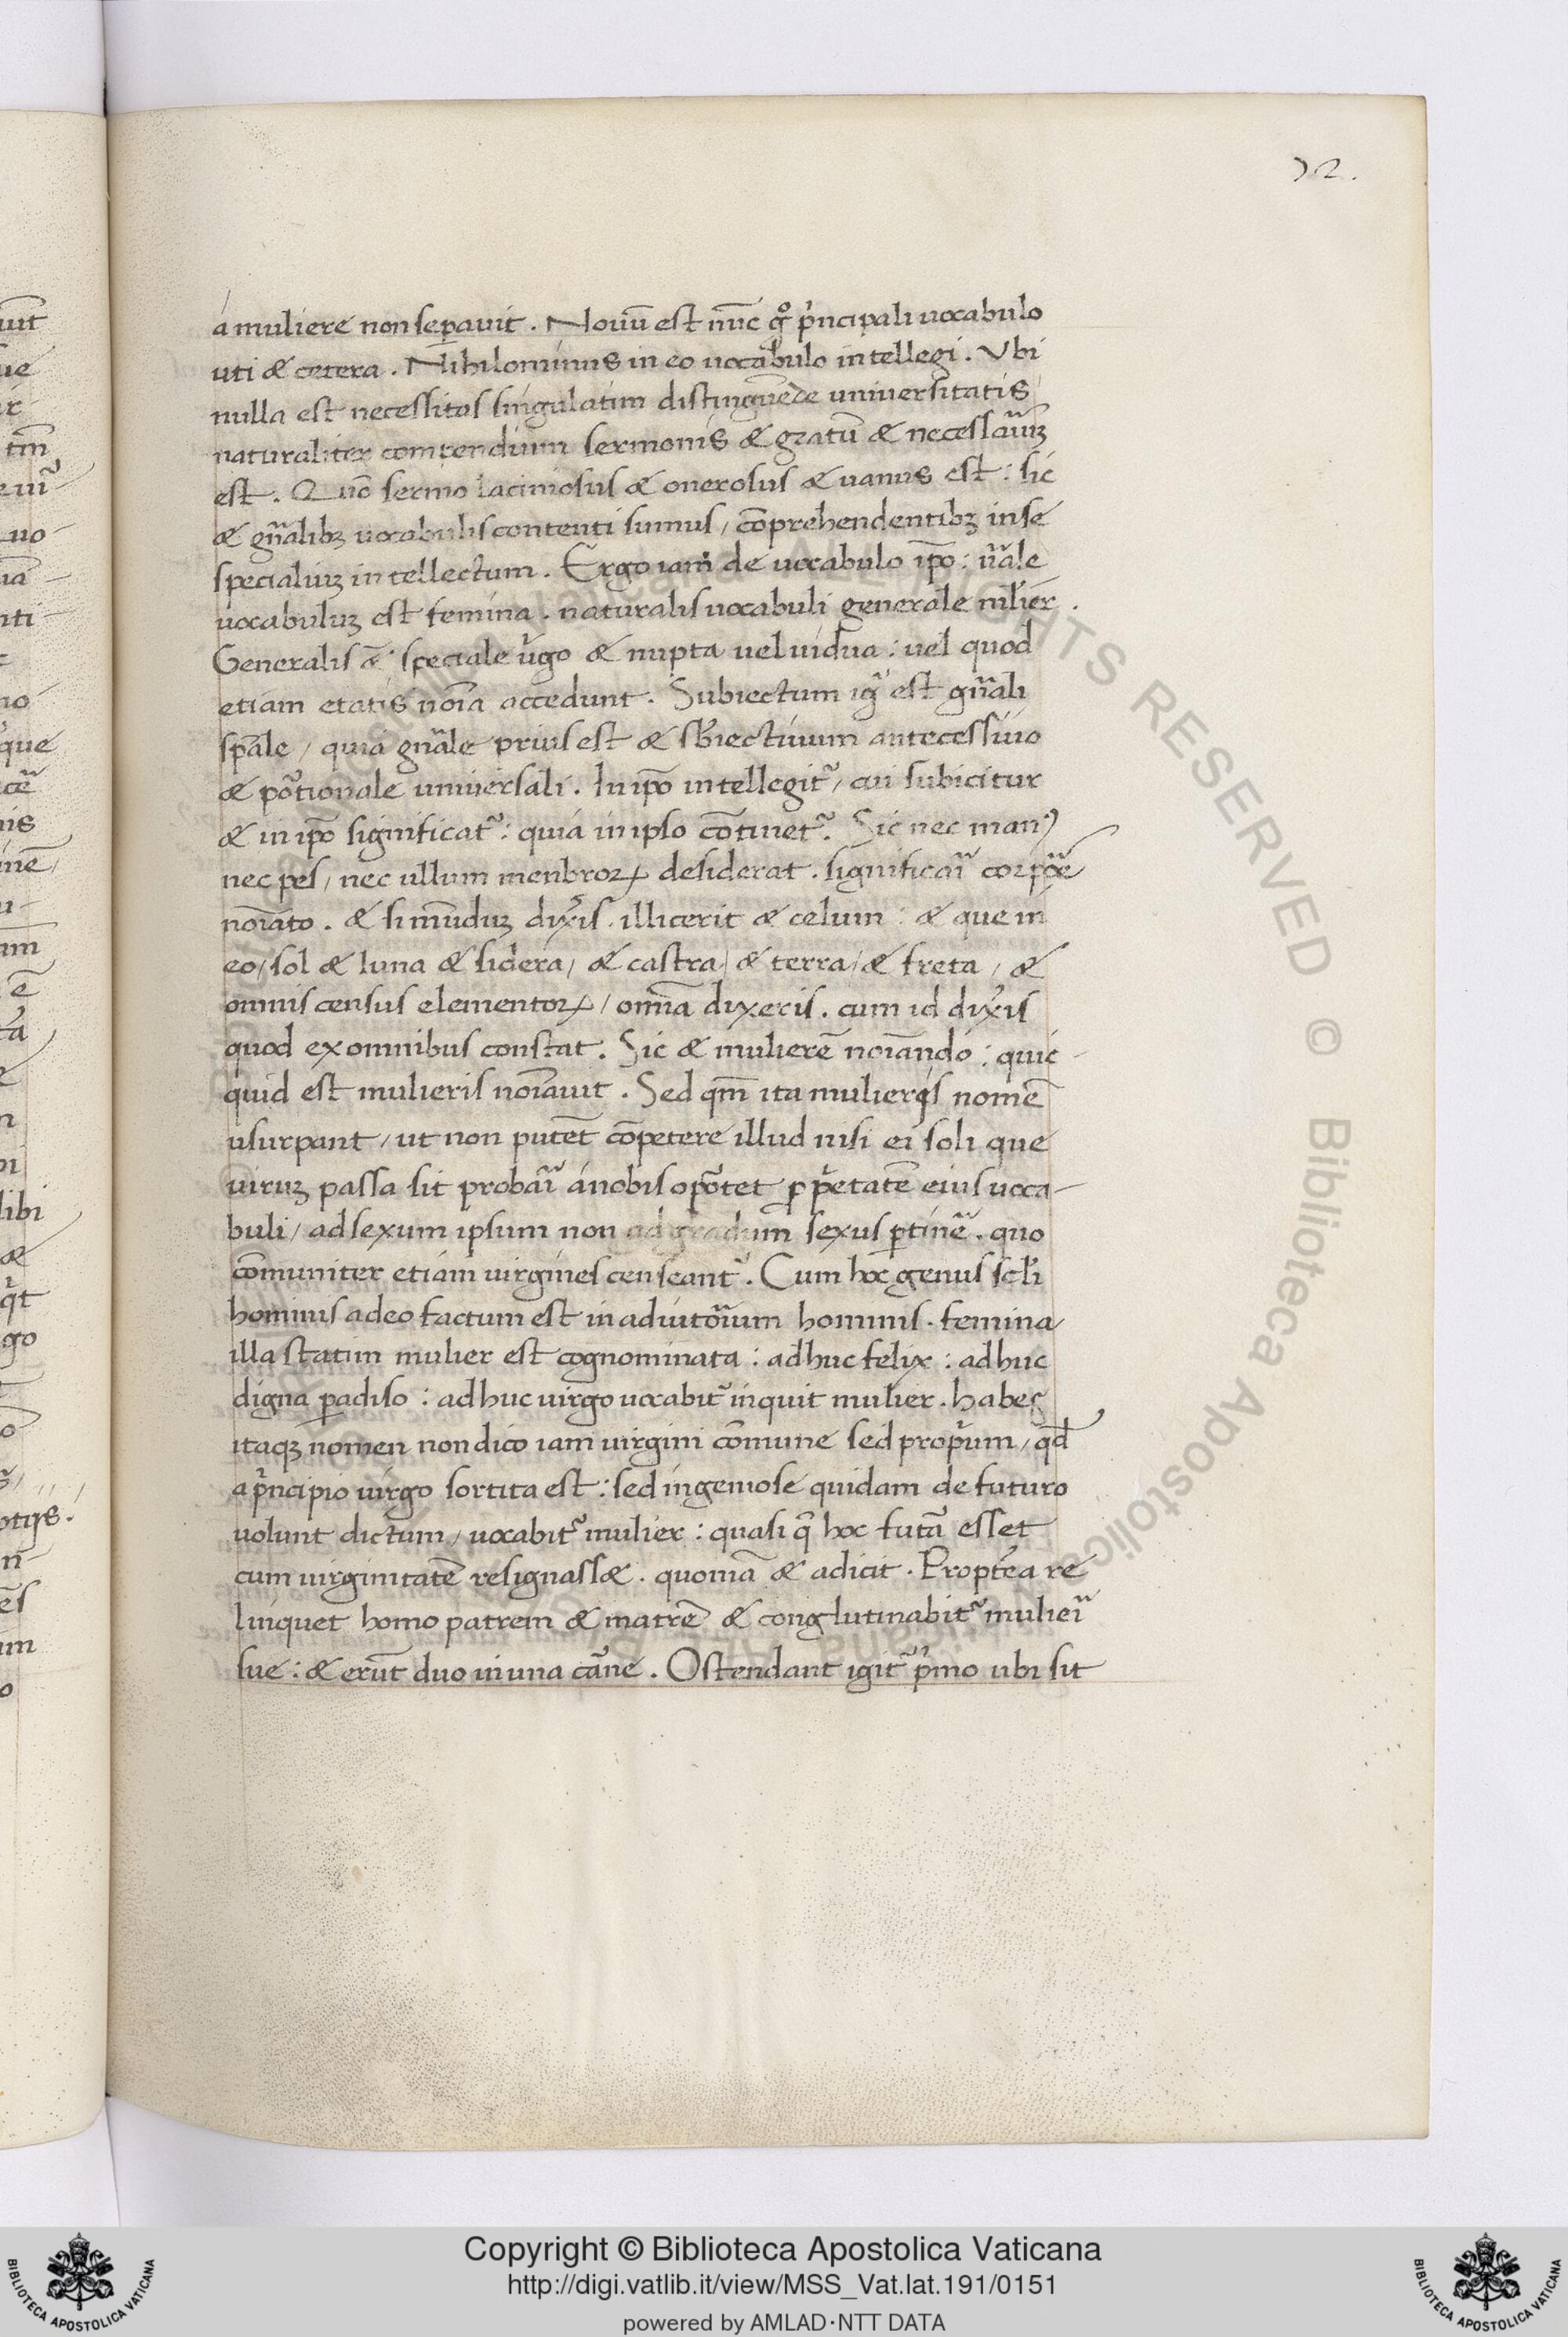 72.
á muliere non sep̱avit . Nouū est nūc qͦ pͥncipali uocabulo
uti & cetera . Nihilominus in eo uocabulo intellegi . Vbi
nulla est necessitas singulatim distinguēde universitatis
naturaliter compendium sermonis & gratū & necessaͥuꝫ
est . Quō sermo laciniosus & onerosus & uanus est : sic
& gn̄alibꝫ uocabulis contenti sumus / cōprehendentibꝫ in se
specialiuꝫ intellectum . Ergo iam de uocabulo ip̄o : n̄ale
uocabuluꝫ est femina . naturalis uocabuli generale mĺier .
Generalis &̄ speciale uͥgo & nupta uel uidua : uel quod
etiam etatis noīa accedunt . Subiectum igͥ est gn̄ali
sp̄ale / quia gn̄ale prius est & sƀiectiuum antecessiuo
& poͬtionale universali . In ip̄o intellegitᷣ / cui subicitur
& in ip̄o significatᷣ : quia in ipso cōtinetᷣ . Sic nec manꝰ
nec pes / nec ullum menbroꝝ desiderat . significaͥ corpoͤ
noīato . & si mūduꝫ dix̓is . illic erit & celum : & que in
eo / sol & luna & sidera / & castra / & terra / & freta / &
omnis census elementoꝝ / omīa dixeris . cum id dix̓is
quod ex omnibus constat . Sic & mulierē noīando : quic-
quid est mulieris noīauit . Sed qm̄ ita mulieris nomē
usurpant / ut non putēt cōpetere illud nisi ei soli que
viruꝫ passa sit probaͥ á nobis opoͬtet ꝓpͥetatē eius uoca-
buli / ad sexum ipsum non ad gradum sexus ꝑtinē . quo
cōmuniter etiam virgines censeantᷣ . Cum hoc genus scƚi
hominis adeo factum est in adiutoͥium hominis . femina
illa statim mulier est cognominata : adhuc felix : adhuc
digna ꝑadiso : adhuc virgo uocabitᷣ inquit mulier . habes
itaqꝫ nomen non dico iam virgini cōmune sed propͥum / qd̄
a pͥncipio virgo sortita est : sed ingeniose quidam de futuro
uolunt dictum / uocabitᷣ mulier : quasi q̄ hoc futᷓa esset
cum virginitatē resignasset . quoniā & adicit . Propt̓ea re
linquet homo patrem & matrē & conglutinabitᷣ mulieͥ
sue : & erūt duo in una caͬne . Ostendant igitᷣ pͥmo ubi sit
RIGHTS RESERVED © Biblioteca Apostolica
Copyright © Biblioteca Apostolica Vaticana
http://digi.vatlib.it/view/MSS_Vat.lat.191/0151
powered by AMLAD·NTT DATA
BIBLIOTECA APOSTOLICA VATICANA
BIBLIOTECA APOSTOLICA VATICANA